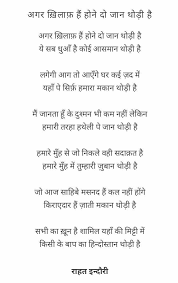 अगर ख़िलाफ़ हैं होने दो जान थोड़ी है
अगर ख़िलाफ़ हैं होने दो जान थोड़ी है
ये सब धुआँ है कोई आसमान थोड़ी है
लगेगी आग तो आएँगे घर कई ज़द में
यहाँ पे सिर्फ़ हमारा मकान थोड़ी है
मैं जानता हूँ के दुश्मन भी कम नहीं लेकिन
हमारी तरहा हथेली पे जान थोड़ी है
हमारे मुँह से जो निकले वही सदाक़त है
हमारे मुँह में तुम्हारी ज़ुबान थोड़ी है
जो आज साहिबे मसनद हैं कल नहीं होंगे
किराएदार हैं ज़ाती मकान थोड़ी है
सभी का ख़ून है शामिल यहाँ की मिट्टी में
किसी के बाप का हिन्दोस्तान थोड़ी है
राहत इन्दौरी